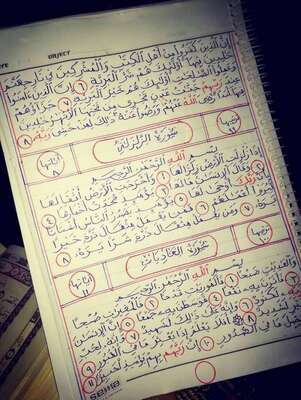 OBJECT
إِنَّ الَّذِينَ كَفَرُوا مِنْ أَهْلِ الْكِتَٰبِ وَالْمُشْرِكِينَ فِي نَارِ جَهَنَّمَ
خَٰلِدِينَ فِيهَا أُولَٰئِكَ هُمْ شَرُّ الْبَرِيَّةِ ٦ إِنَّ الَّذِينَ ءَامَنُوا
وَعَمِلُوا الصَّٰلِحَٰتِ أُولَٰئِكَ هُمْ خَيْرُ الْبَرِيَّةِ ٧ جَزَاؤُهُمْ
عِندَ رَبِّهِمْ جَنَّٰتُ عَدْنٍ تَجْرِي مِن تَحْتِهَا الْأَنْهَٰرُ خَٰلِدِينَ
فِيهَا أَبَدًا رَّضِيَ اللَّهُ عَنْهُمْ وَرَضُوا عَنْهُ ذَٰلِكَ لِمَنْ خَشِيَ رَبَّهُ ٨
آياتها ٨ سُورَةُ الزَّلْزَلَةِ ٩٩
بِسْمِ اللَّهِ الرَّحْمَٰنِ الرَّحِيمِ
إِذَا زُلْزِلَتِ الْأَرْضُ زِلْزَالَهَا ١ وَأَخْرَجَتِ الْأَرْضُ أَثْقَالَهَا
٢ وَقَالَ الْإِنسَٰنُ مَا لَهَا ٣ يَوْمَئِذٍ تُحَدِّثُ أَخْبَارَهَا
٤ بِأَنَّ رَبَّكَ أَوْحَىٰ لَهَا ٥ يَوْمَئِذٍ يَصْدُرُ النَّاسُ أَشْتَاتًا
لِّيُرَوْا أَعْمَٰلَهُمْ ٦ فَمَن يَعْمَلْ مِثْقَالَ ذَرَّةٍ خَيْرًا
يَرَهُ ٧ وَمَن يَعْمَلْ مِثْقَالَ ذَرَّةٍ شَرًّا يَرَهُ ٨
آياتها ١١ سُورَةُ الْعَادِيَاتِ ١٠٠
بِسْمِ اللَّهِ الرَّحْمَٰنِ الرَّحِيمِ
وَالْعَٰدِيَٰتِ ضَبْحًا ١ فَالْمُورِيَٰتِ قَدْحًا ٢ فَالْمُغِيرَٰتِ صُبْحًا
٣ فَأَثَرْنَ بِهِ نَقْعًا ٤ فَوَسَطْنَ بِهِ جَمْعًا ٥ إِنَّ الْإِنسَٰنَ
لِرَبِّهِ لَكَنُودٌ ٦ وَإِنَّهُ عَلَىٰ ذَٰلِكَ لَشَهِيدٌ ٧ وَإِنَّهُ لِحُبِّ
الْخَيْرِ لَشَدِيدٌ ٨ أَفَلَا يَعْلَمُ إِذَا بُعْثِرَ مَا فِي الْقُبُورِ ٩
وَحُصِّلَ مَا فِي الصُّدُورِ ١٠ إِنَّ رَبَّهُم بِهِمْ يَوْمَئِذٍ لَّخَبِيرٌ ١١